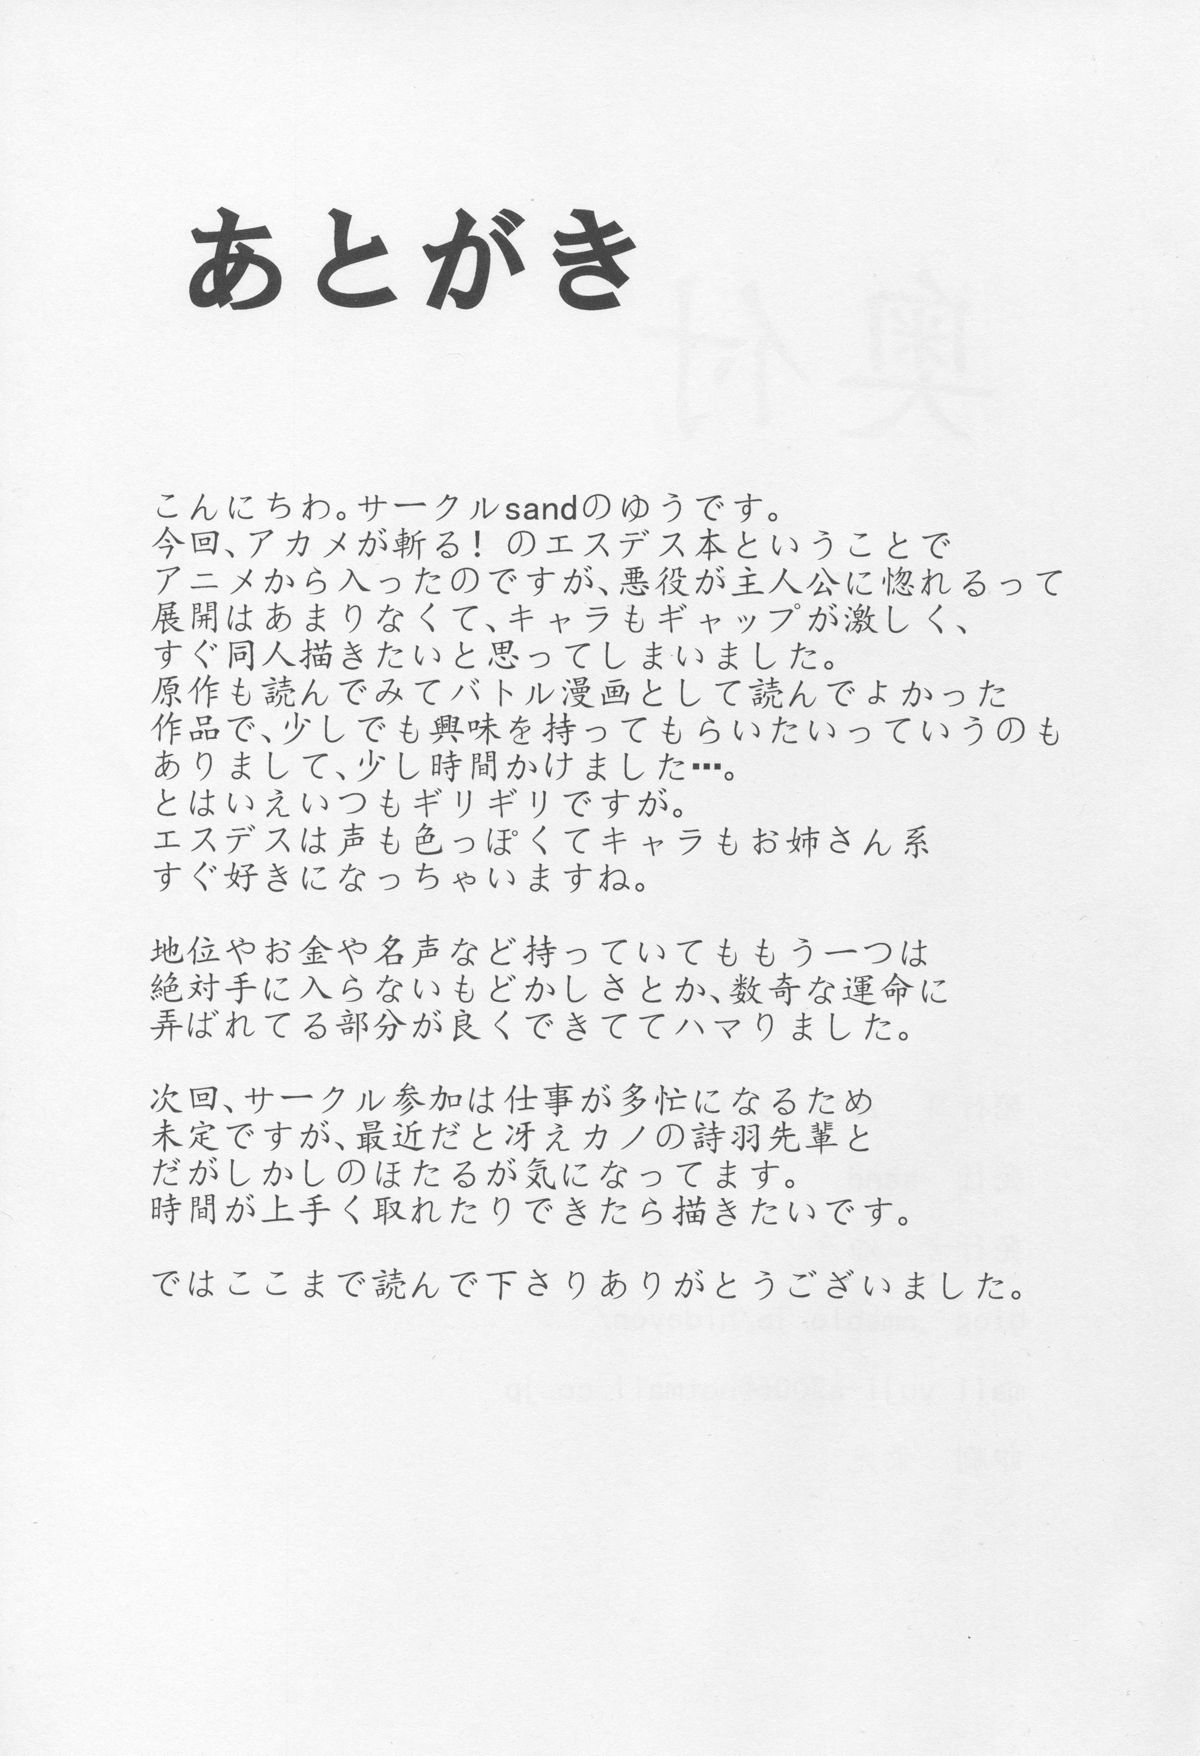 あとがき
こんにちわ。サークルsandのゆうです。
今回、アカメが斬る！のエスデス本ということで
アニメから入ったのですが、悪役が主人公に惚れるって
展開はあまりなくて、キャラもギャップが激しく、
すぐ同人描きたいと思ってしまいました。
原作も読んでみてバトル漫画として読んでよかった
作品で、少しでも興味を持ってもらいたいっていうのも
ありまして、少し時間かけました…。
とはいえいつもギリギリですが。
エスデスは声も色っぽくてキャラもお姉さん系
すぐ好きになっちゃいますね。
地位やお金や名声など持っていてももう一つは
絶対手に入らないもどかしさとか、数奇な運命に
弄ばれてる部分が良くできててハマりました。
次回、サークル参加は仕事が多忙になるため
未定ですが、最近だと冴えカノの詩羽先輩と
だがしかしのほたるが気になってます。
時間が上手く取れたりできたら描きたいです。
ではここまで読んで下さりありがとうございました。
奥付